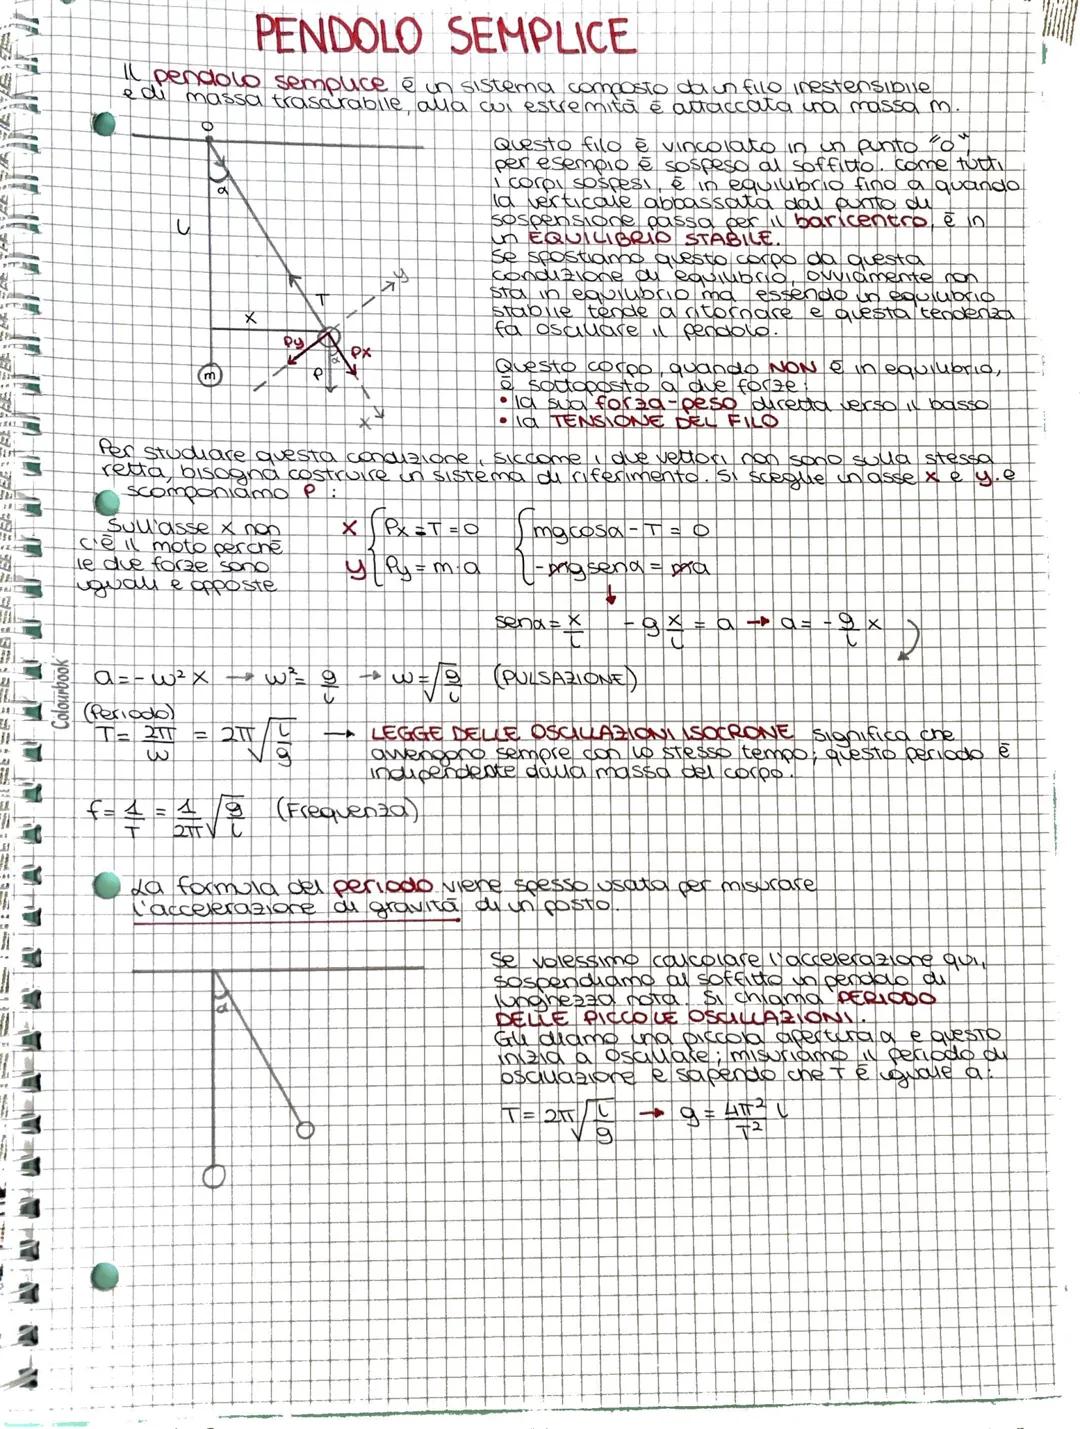 PENDOLO SEMPLICE
Il pendolo semplice è un sistema composto da un filo inestensibile
e di massa trascurabile, alla cui estremità è attaccata una massa m.
O
α
L
T
y
x
Py
Px
α
P
m
x
Questo filo è vincolato in un punto "O",
per esempio è sospeso al soffitto. Come tutti
i corpi sospesi, è in equilibrio fino a quando
la verticale abbassata dal punto di
sospensione passa per il baricentro, è in
un EQUILIBRIO STABILE.
Se spostiamo questo corpo da questa
condizione di equilibrio, ovviamente non
sta in equilibrio ma essendo un equilibrio
stabile tende a ritornare e questa tendenza
fa oscillare il pendolo.
Questo corpo, quando NON è in equilibrio,
è sottoposto a due forze:
• la sua forza-peso diretta verso il basso
• la TENSIONE DEL FILO
Per studiare questa condizione, siccome i due vettori non sono sulla stessa
retta, bisogna costruire un sistema di riferimento. Si sceglie un asse x e y. e
scomponiamo P :
Sull'asse x non
c'è il moto perché
le due forze sono
uguali e opposte
x { Px - T = 0 { mgcosα - T = 0
y { Py = m·a { -mgsenα = ma
senα = x/l -g x/l = a → a = - g/l x
a = - ω² x → ω² = g/l → ω = √g/l (PULSAZIONE)
(Periodo)
T = 2π/ω = 2π √l/g → LEGGE DELLE OSCILLAZIONI ISOCRONE significa che
avvengono sempre con lo stesso tempo; questo periodo è
indipendente dalla massa del corpo.
f = 1/T = 1/2π √g/l (Frequenza)
La formula del periodo viene spesso usata per misurare
l'accelerazione di gravità di un posto.
α
Se volessimo calcolare l'accelerazione qui,
sospendiamo al soffitto un pendolo di
lunghezza nota. Si chiama PERIODO
DELLE PICCOLE OSCILLAZIONI.
Gli diamo una piccola apertura α e questo
inizia a oscillare; misuriamo il periodo di
oscillazione e sapendo che T è uguale a:
T = 2π √l/g → g = 4π²/T² l
Colourbook